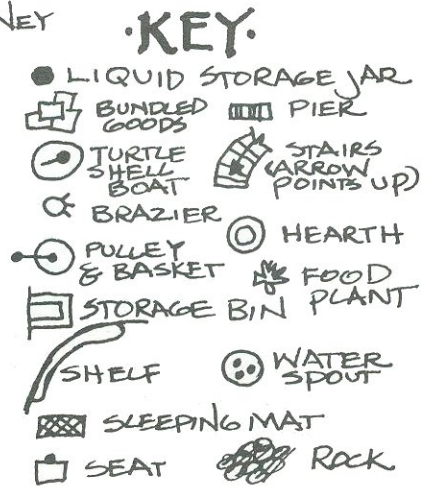 NEY
·KEY·
LIQUID STORAGE JAR
BUNDLED
GOODS
PIER
TURTLE
SHELL
BOAT
STAIRS
(ARROW
POINTS UP)
BRAZIER
HEARTH
PULLEY
& BASKET
FOOD
PLANT
STORAGE BIN
SHELF
WATER
SPOUT
SLEEPING MAT
SEAT
ROCK